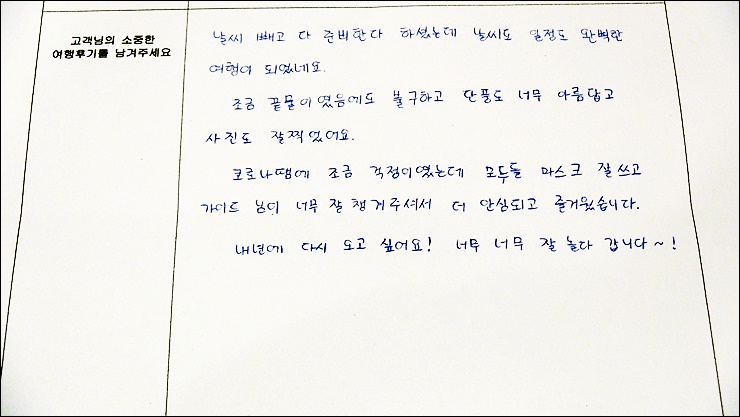 고객님의 소중한
여행후기를 남겨주세요
날씨 빼고 다 준비한다 하셨는데 날씨도 일정도 완벽한
여행이 되었네요.
조금 끝물이였음에도 불구하고 단풍도 너무 아름답고
사진도 잘찍었어요.
코로나땜에 조금 걱정이였는데 모두들 마스크 잘 쓰고
가이드 님이 너무 잘 챙겨주셔서 더 안심되고 즐거웠습니다.
내년에 다시 오고 싶어요! 너무 너무 잘 놀다 갑니다~!